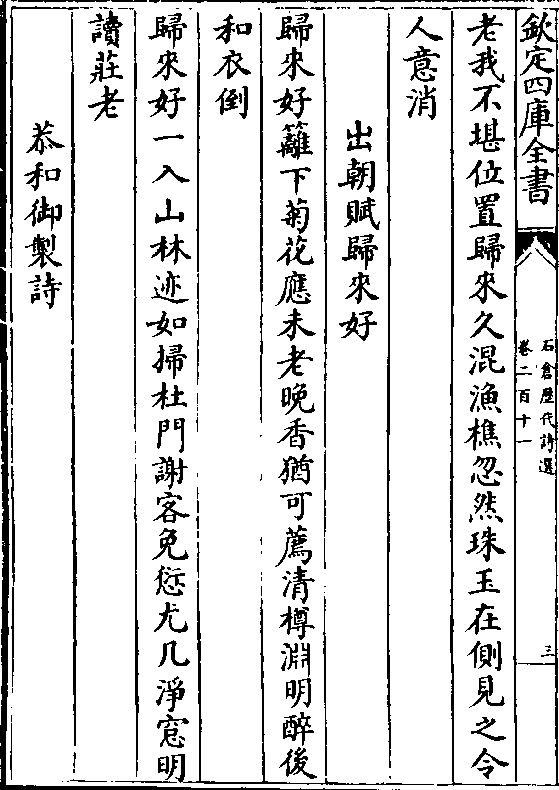 欽定四庫全書
石倉歴代詩選
卷二百十一
三
老我不堪位置歸來久混漁樵忽然珠玉在側見之令
人意消
出朝賦歸來好
歸來好籬下菊花應未老晚香猶可薦清樽淵明醉後
和衣倒
歸來好一入山林迹如掃杜門謝客免愆尤几淨窓明
讀莊老
恭和御製詩